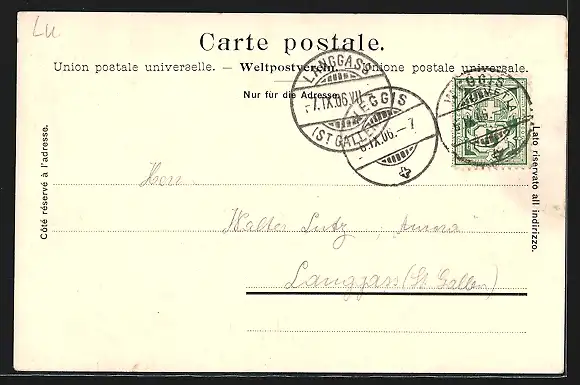 Lu
Carte postale.
Union postale universelle. — Weltpostverein. — Unione postale universale.
Nur für die Adresse.
LANGGASS
7.IX.06.VII
(ST GALLEN)
WEGGIS
6.IX.06.–7
WEGGIS
6.IX.06.–7
HELVETIA
Côté réservé à l'adresse.
Lato riservato all indirizzo.
Herrn
Walter Lutz, "Aurora"
Langgass (St. Gallen)